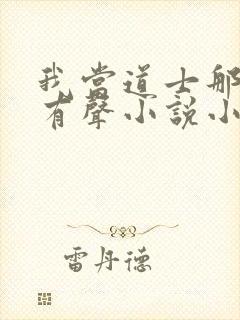 我當道士那
有聲小說小
雷丹德